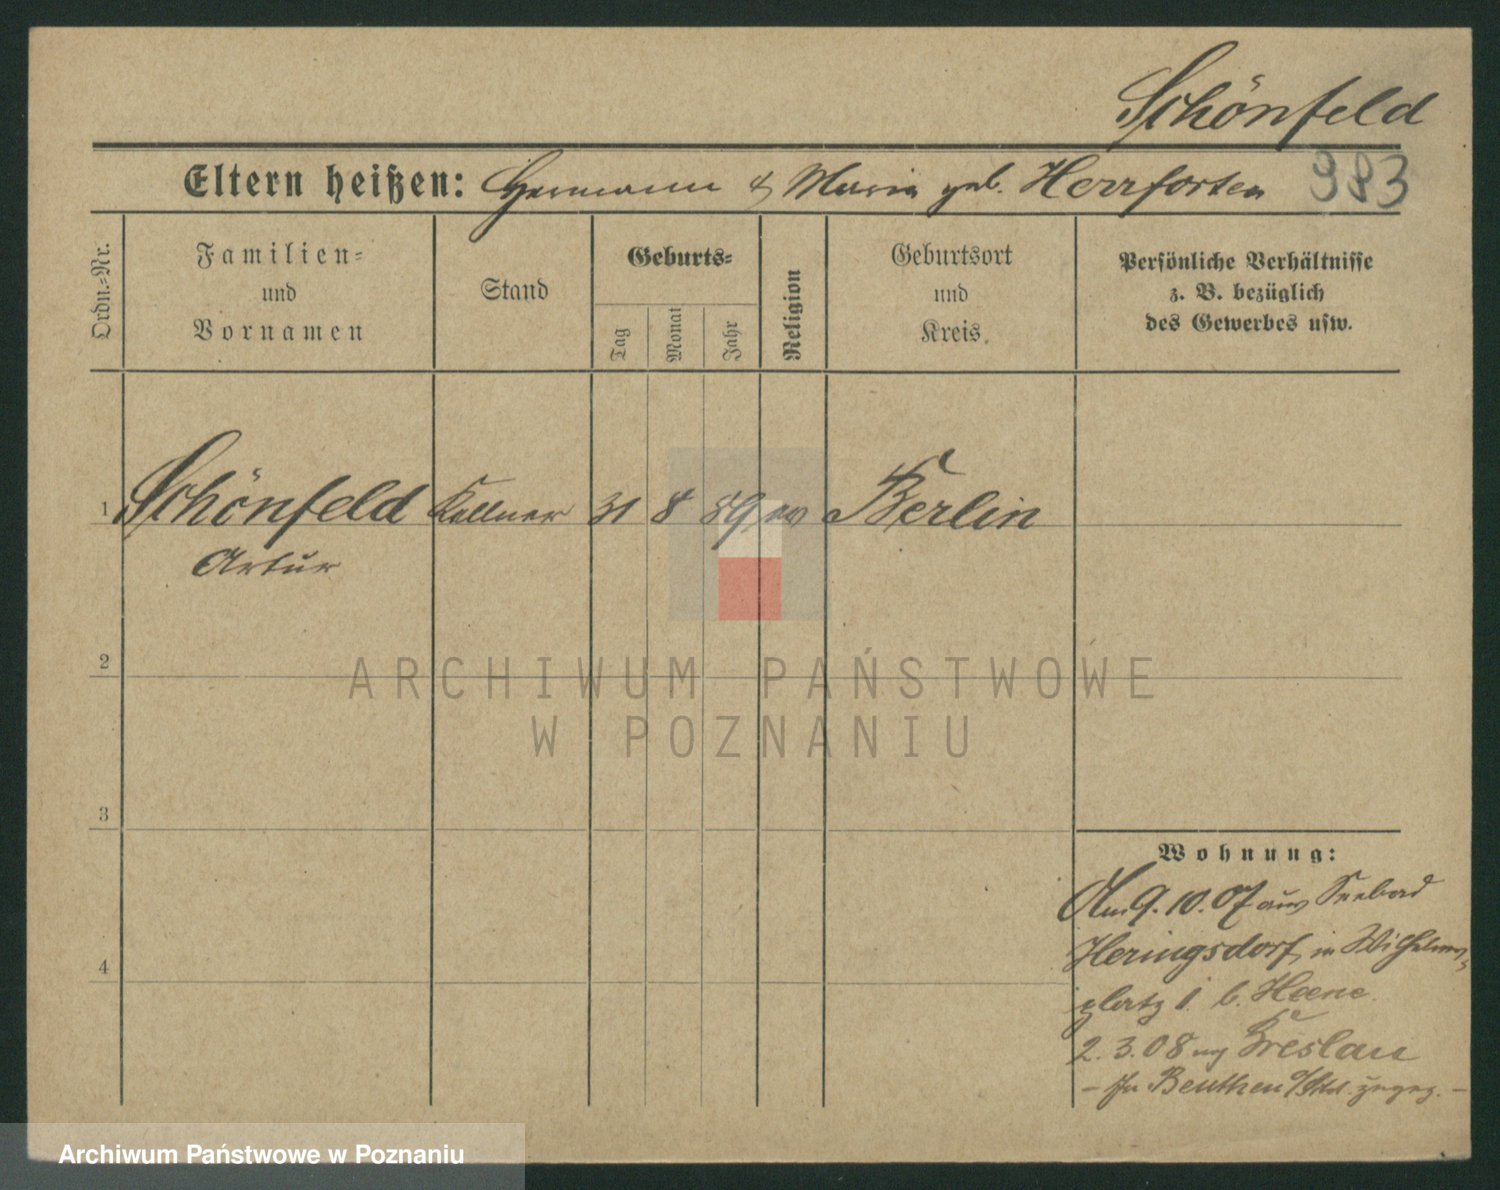 Schönfeld
Eltern heißen: Hermann & Maria geb. Herrforten 983
Ordn.-Nr.
Familien-
und
Vornamen
Stand
Geburts-
Tag
Monat
Jahr
Religion
Geburtsort
und
Kreis.
Persönliche Verhältnisse
z. B. bezüglich
des Gewerbes usw.
1 Schönfeld Kellner 31 8 89 ev Berlin
Artur
2
ARCHIWUM PAŃSTWOWE
W POZNANIU
3
Wohnung:
Am 9.10.07 aus Seebad
Heringsdorf, in Wilhelms-
4
platz 1. b. Heene
2.3.08 Breslau
– In Beuthen zugez. –
Archiwum Państwowe w Poznaniu